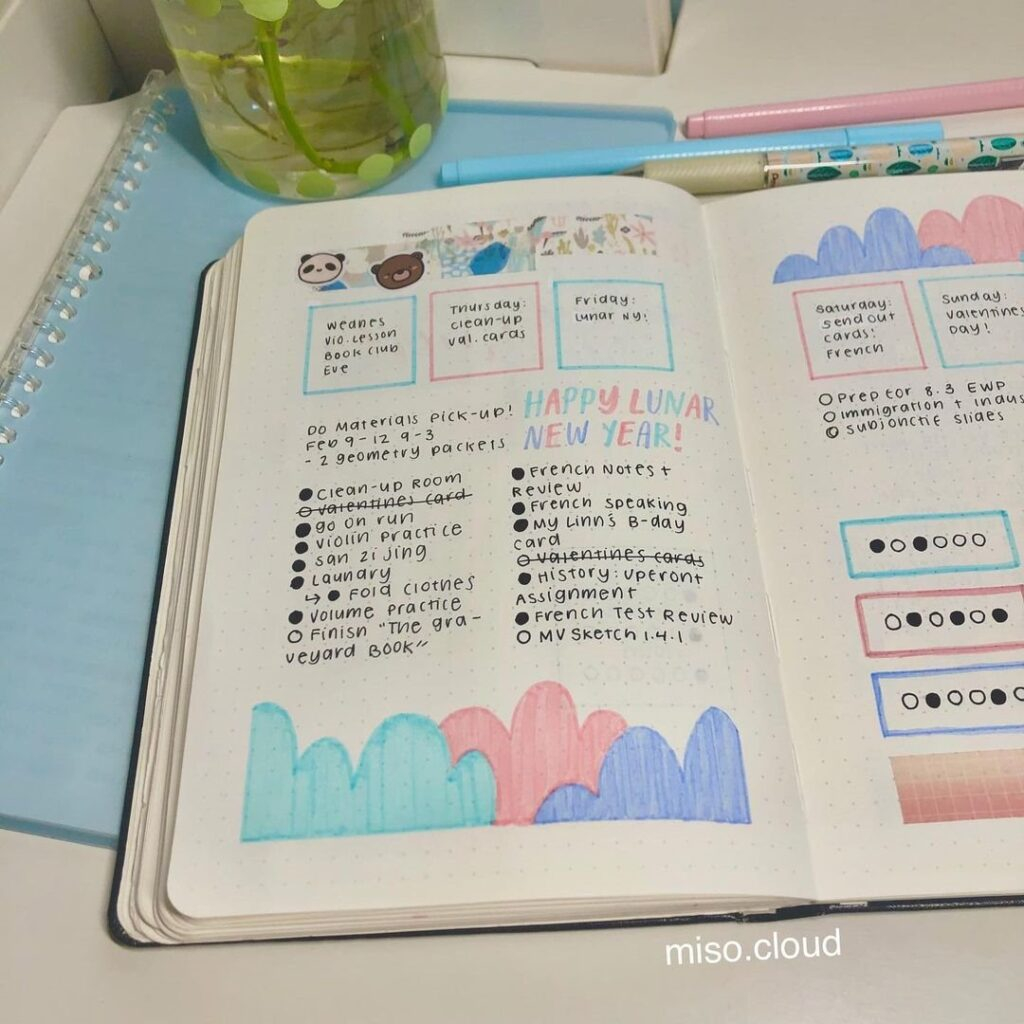 Wednes
Vio. Lesson
Book Club
Eve
Thursday:
clean-up
val. cards
Friday:
Lunar NY!
Saturday:
send out
cards!
French
Sunday:
valentines
Day!
DO Materials Pick-up!
Feb 9-12 9-3
- 2 geometry packets
HAPPY LUNAR
NEW YEAR!
Clean-up Room
valentines card
go on run
violin practice
san zi jing
Laundry
↳ Fold clothes
Volume Practice
Finish "The gra-
veyard BOOK"
French Notes +
Review
French speaking
My Linn's B-day
card
valentines cards
History: Vperont
Assignment
French Test Review
MV Sketch 1.4.1
Prep for 8.3 EWP
Immigration + Indus
Subjonctif slides
miso.cloud